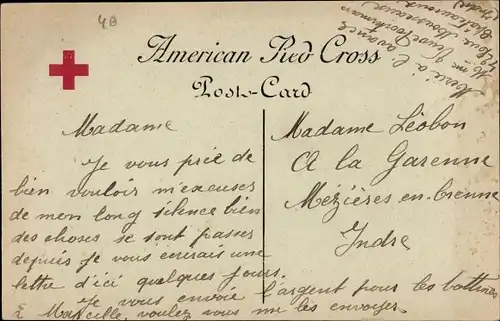 48
American Red Cross
Post-Card
Merci à l'avance
Madame
Je vous prie de
bien vouloir m'excuses
de mon long silence bien
des choses se sont passes
depuis Je vous
lettre d'ici quelques jours.
Je vous envoie l'argent pour les
à Marcelle, voulez vous me les envoyer.
Madame Léobon
A la Garenne
Mézières en-brenne
Indre